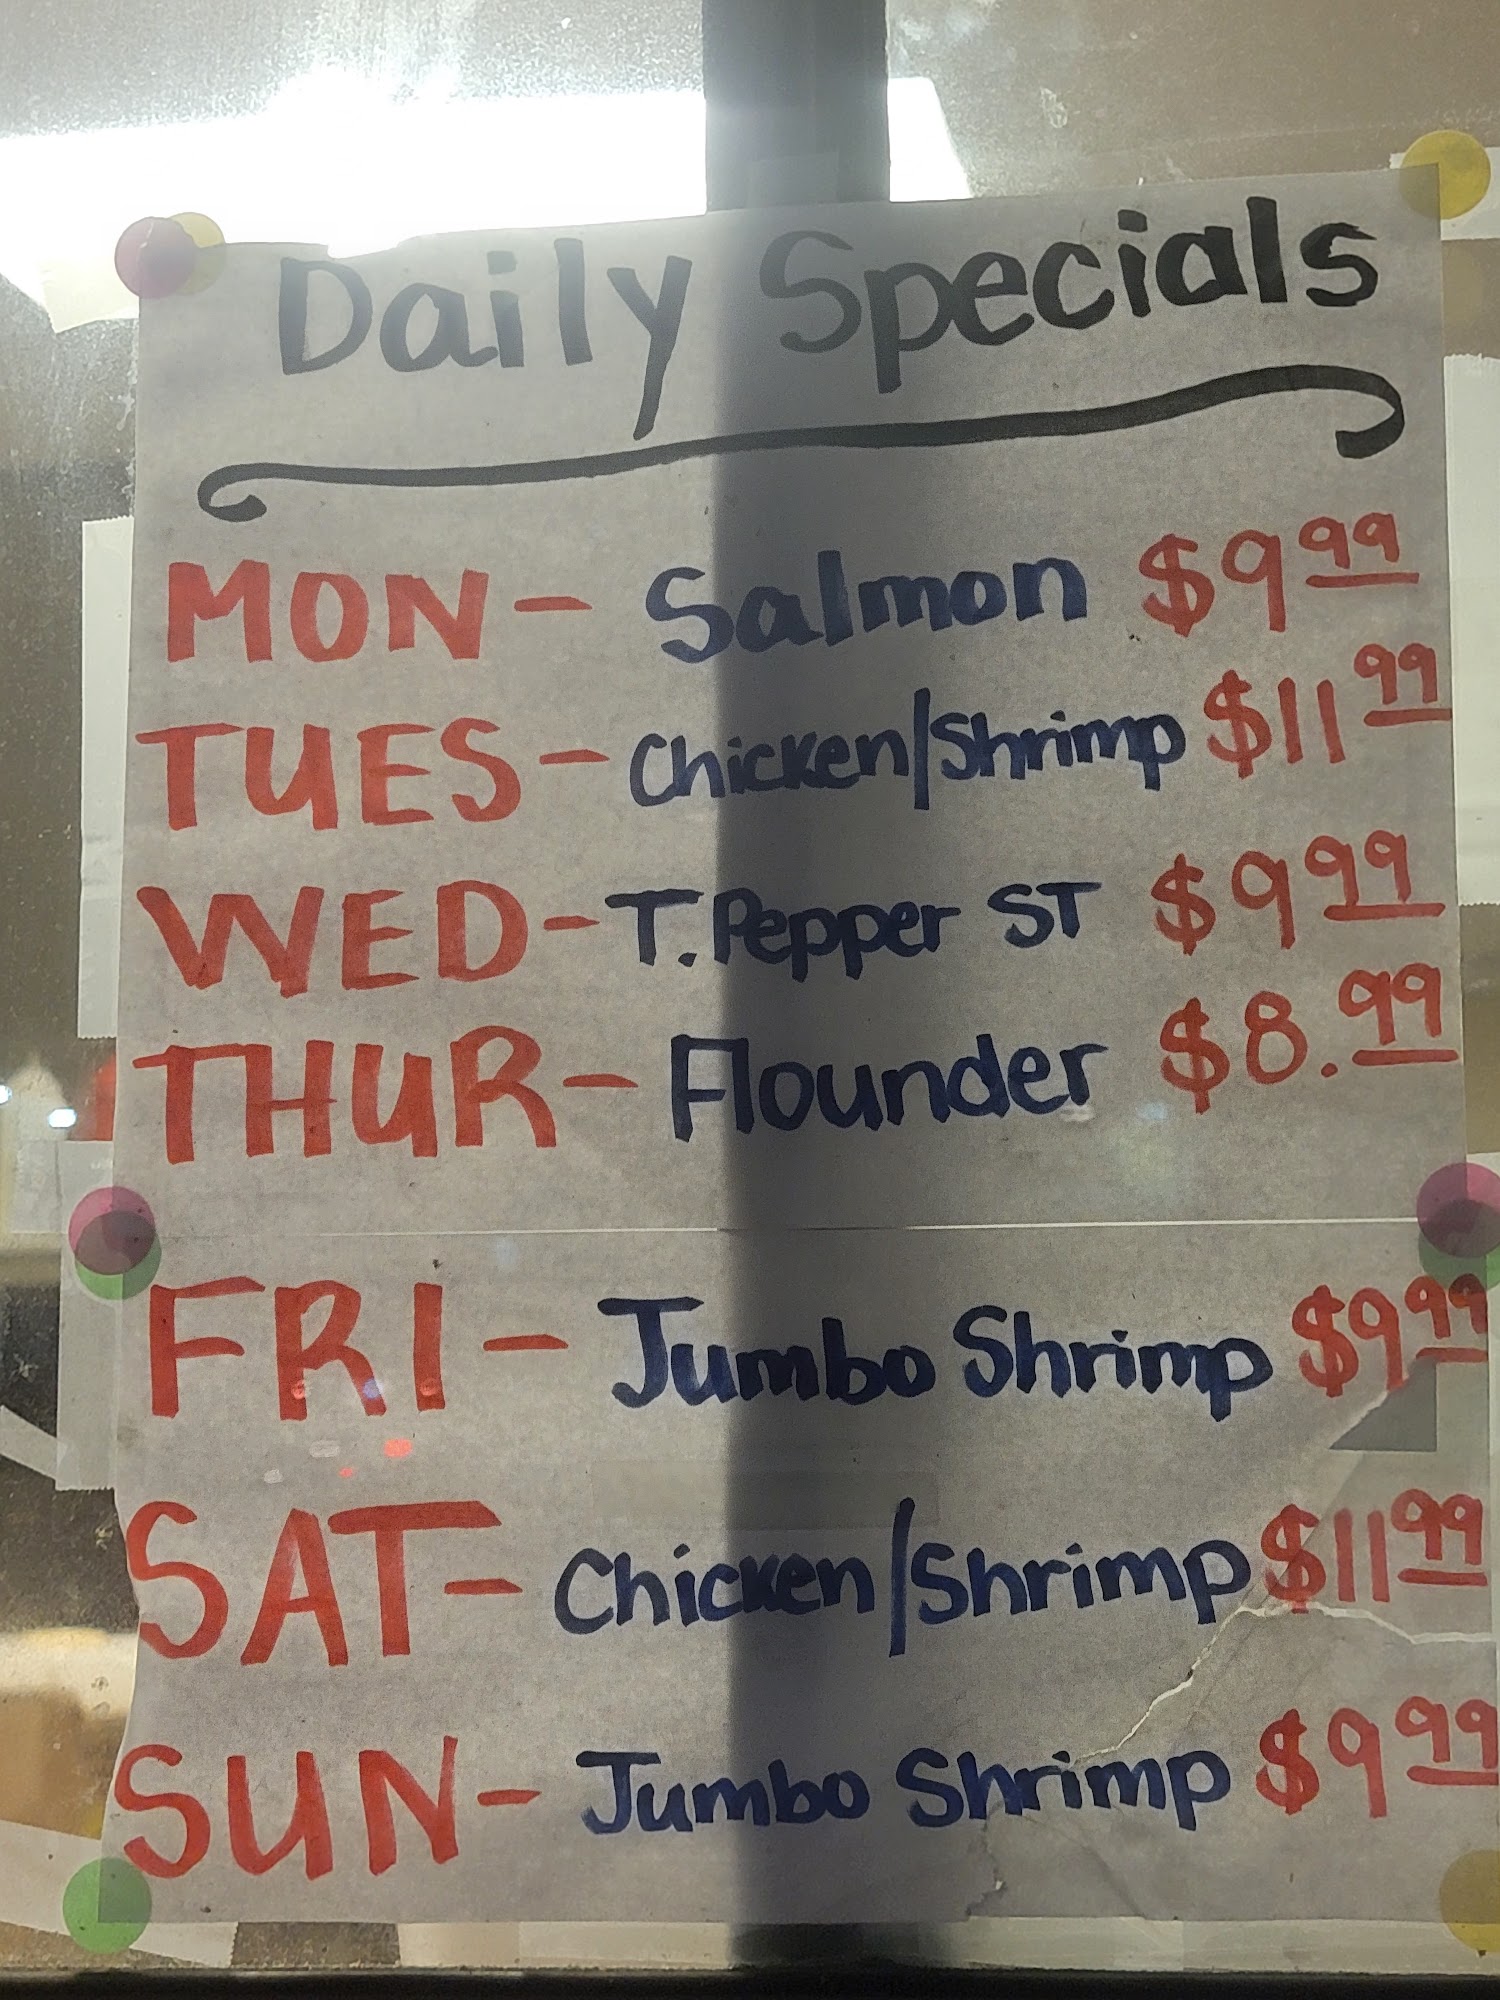 Daily Specials
MON- Salmon $9 99
TUES- Chicken/Shrimp $11 99
WED- T. Pepper ST $9 99
THUR- Flounder $8. 99
FRI- Jumbo Shrimp $9 99
SAT- Chicken/Shrimp $11 99
SUN- Jumbo Shrimp $9 99